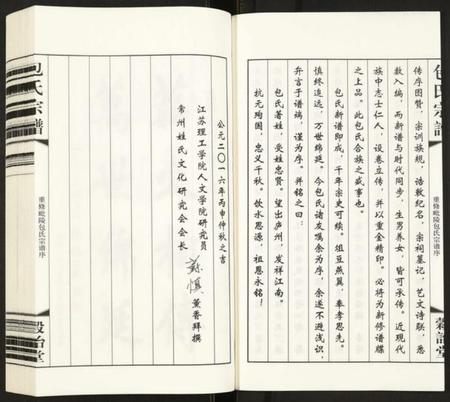 包氏宗譜
传序图赞，宗训族规，诰敕纪名，宗祠墓记，艺文诗联，悉
数入编，而新谱与时代同步，生男养女，皆可承传。近现代
族中志士仁人，设卷立传，并以重金精印。必将为新修谱牒
之上品。此包氏合族之盛事也。
包氏新谱印成，千年宗史可续。俎豆燕翼，奉孝思先。
慎终追远，万世绵延。今包氏诸友嘱余为序，余遂不避浅识，
弁言于谱端，谨为序。并铭之曰：
包氏著姓，受姓忠贤。望出庐州，发祥江南。
抗元殉国，忠义千秋。饮水思源，祖恩永铭！
重修毗陵包氏宗谱序
公元二〇一六年丙申仲秋之吉
江苏理工学院人文学院研究员
常州姓氏文化研究会会长
薰香拜撰
包氏宗譜
重修毗陵包氏宗谱序